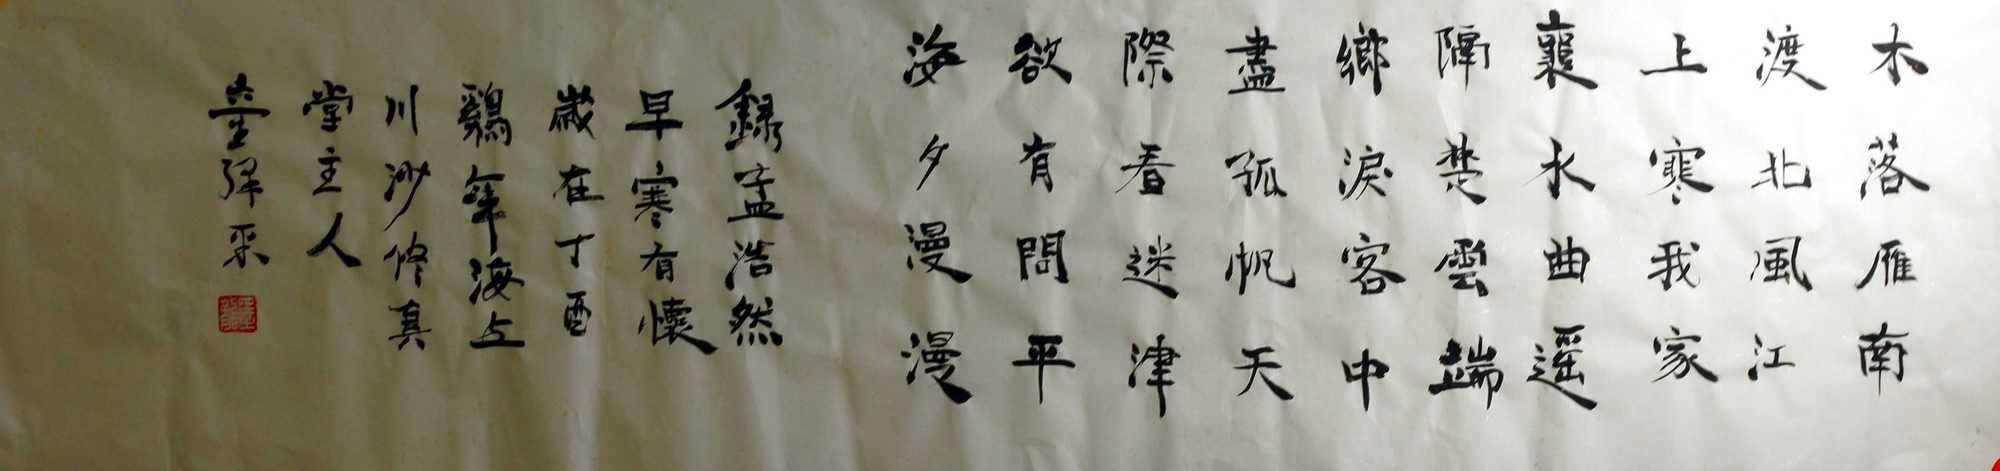 木落雁南
渡北風江
上寒我家
襄水曲遥
隔楚雲端
鄉淚客中
盡孤帆天
際看迷津
欲有問平
海夕漫漫
錄孟浩然
早寒有懷
歲在丁酉
鷄年海上
川沙修真
堂主人
童